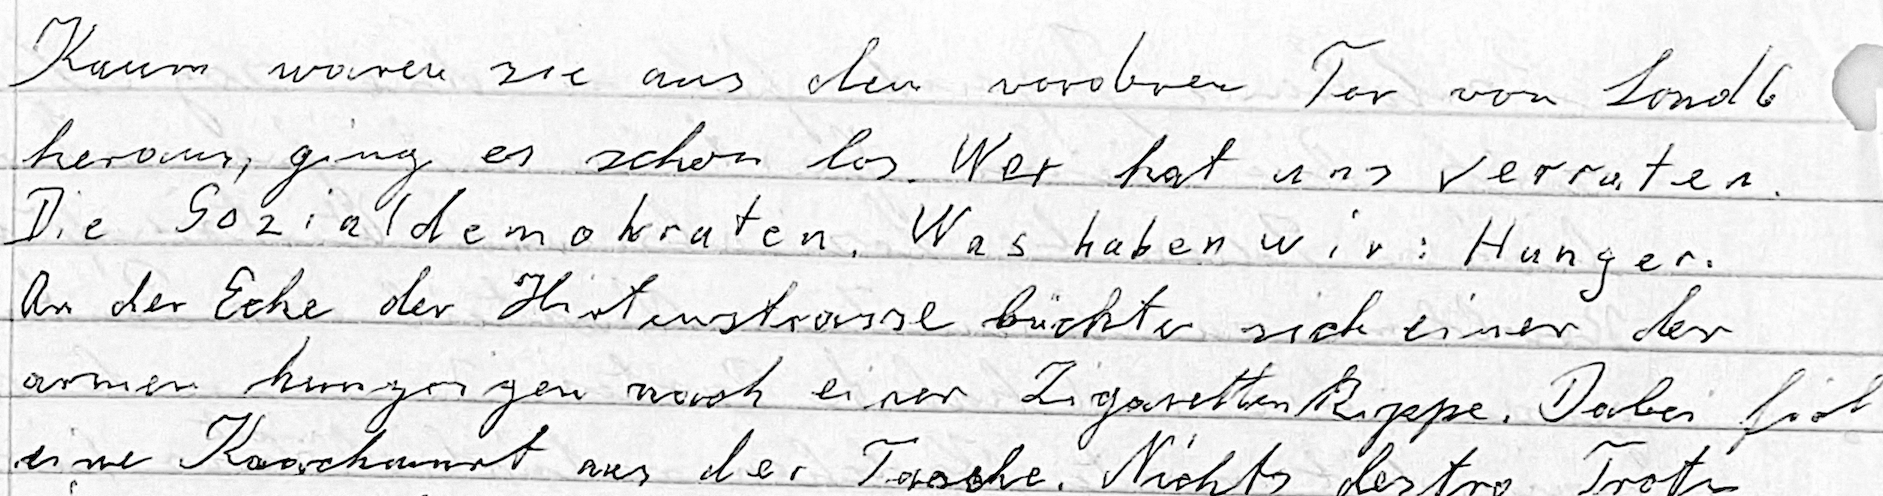 Kaum waren sie aus dem vorderen Tor von Landb
heraus, ging es schon los. Wer hat uns verraten.
Die Sozialdemokraten. Was haben wir: Hunger.
An der Ecke der Hirtenstrasse bückte sich einer der
armen hungrigen nach einer Zigaretten Kippe. Dabei fiel
eine Knackwurst aus der Tasche. Nichts destro Trotz